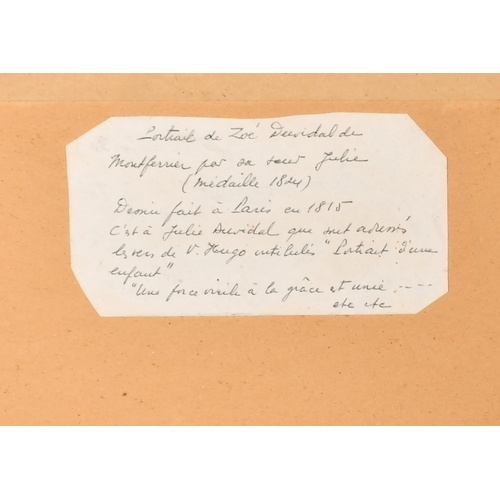 Portrait de Zoé Duvidal de
Montferrier par sa seur Julie
(Médaille 1824)
Dessin fait à Paris en 1815
C'est à Julie Duvidal que sont adressés
les vers de V. Hugo intitulés "Portrait d'une
enfant"
"Une force virile à la grâce est unie . - - -
etc etc